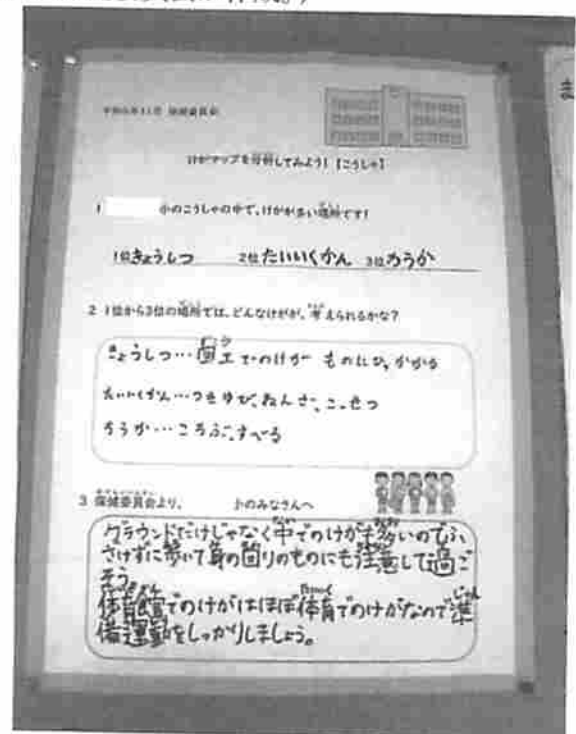 保健委員会
けがマップを分析してみよう!【こうしゃ】
1 小のこうしゃの中で、けがが多い場所です!
1位きょうしつ 2位たいいくかん 3位ろうか
2 1位から3位の場所では、どんなけがが、考えられるかな?
きょうしつ…図工でのけが ものにひっかかる
たいいくかん…つきゆび、ねんざ、こっせつ
ろうか…ころぶ、すべる
3 保健委員会より、 小のみなさんへ
グラウンドだけじゃなく中でのけがも多いのでふ
さけずに歩いて身の回りのものにも注意して過ご
そう。
体育館でのけがはほぼ体育でのけがなので準
備運動をしっかりしましょう。
ま